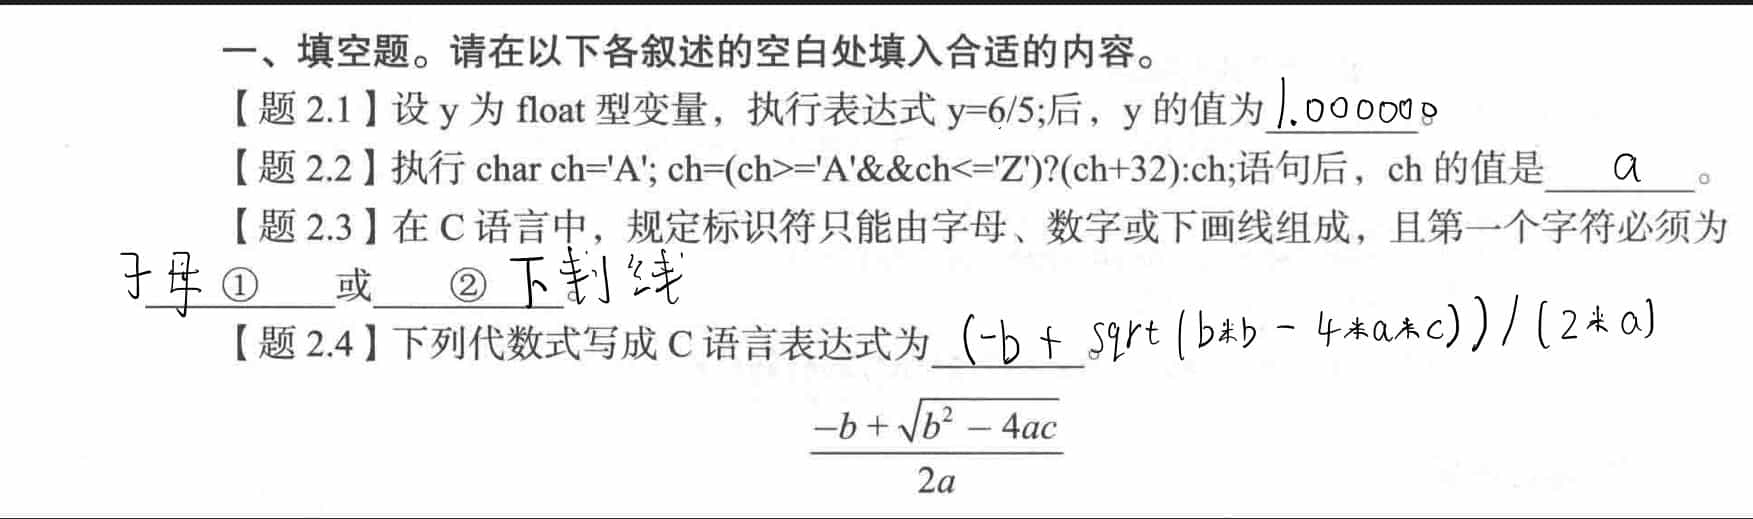 一、填空题。请在以下各叙述的空白处填入合适的内容。
【题 2.1】设 y 为 float 型变量，执行表达式 y=6/5;后，y 的值为 1.000000。
【题 2.2】执行 char ch='A'; ch=(ch>='A'&&ch<='Z')?(ch+32):ch;语句后，ch 的值是 a 。
【题 2.3】在 C 语言中，规定标识符只能由字母、数字或下画线组成，且第一个字符必须为
字母 ① 或 ② 下划线。
【题 2.4】下列代数式写成 C 语言表达式为 (-b + sqrt(b*b - 4*a*c))/(2*a)。
−b + √b² − 4ac
2a